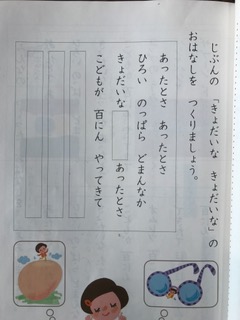 じぶんの 「きょだいな きょだいな」の
おはなしを つくりましょう。
あったとさ あったとさ
ひろい のっぱら どまんなか
きょだいな あったとさ
こどもが 百にん やってきて